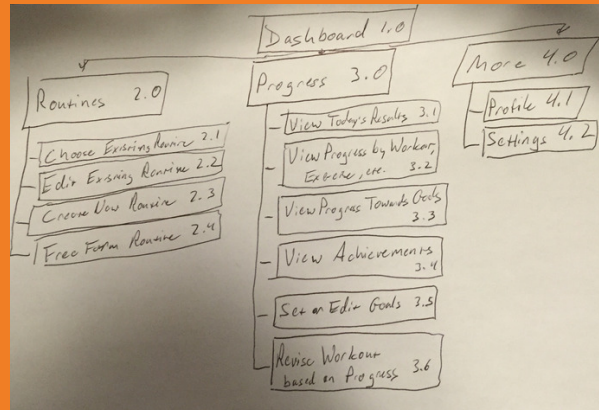 Dashboard 1.0
Routines 2.0
Choose Existing Routine 2.1
Edit Existing Routine 2.2
Create New Routine 2.3
Free Form Routine 2.4
Progress 3.0
View Today's Results 3.1
View Progress by Workout,
Exercise, etc. 3.2
View Progress Towards Goals
3.3
View Achievements
3.4
Set or Edit Goals 3.5
Revise Workout
based on Progress 3.6
More 4.0
Profile 4.1
Settings 4.2